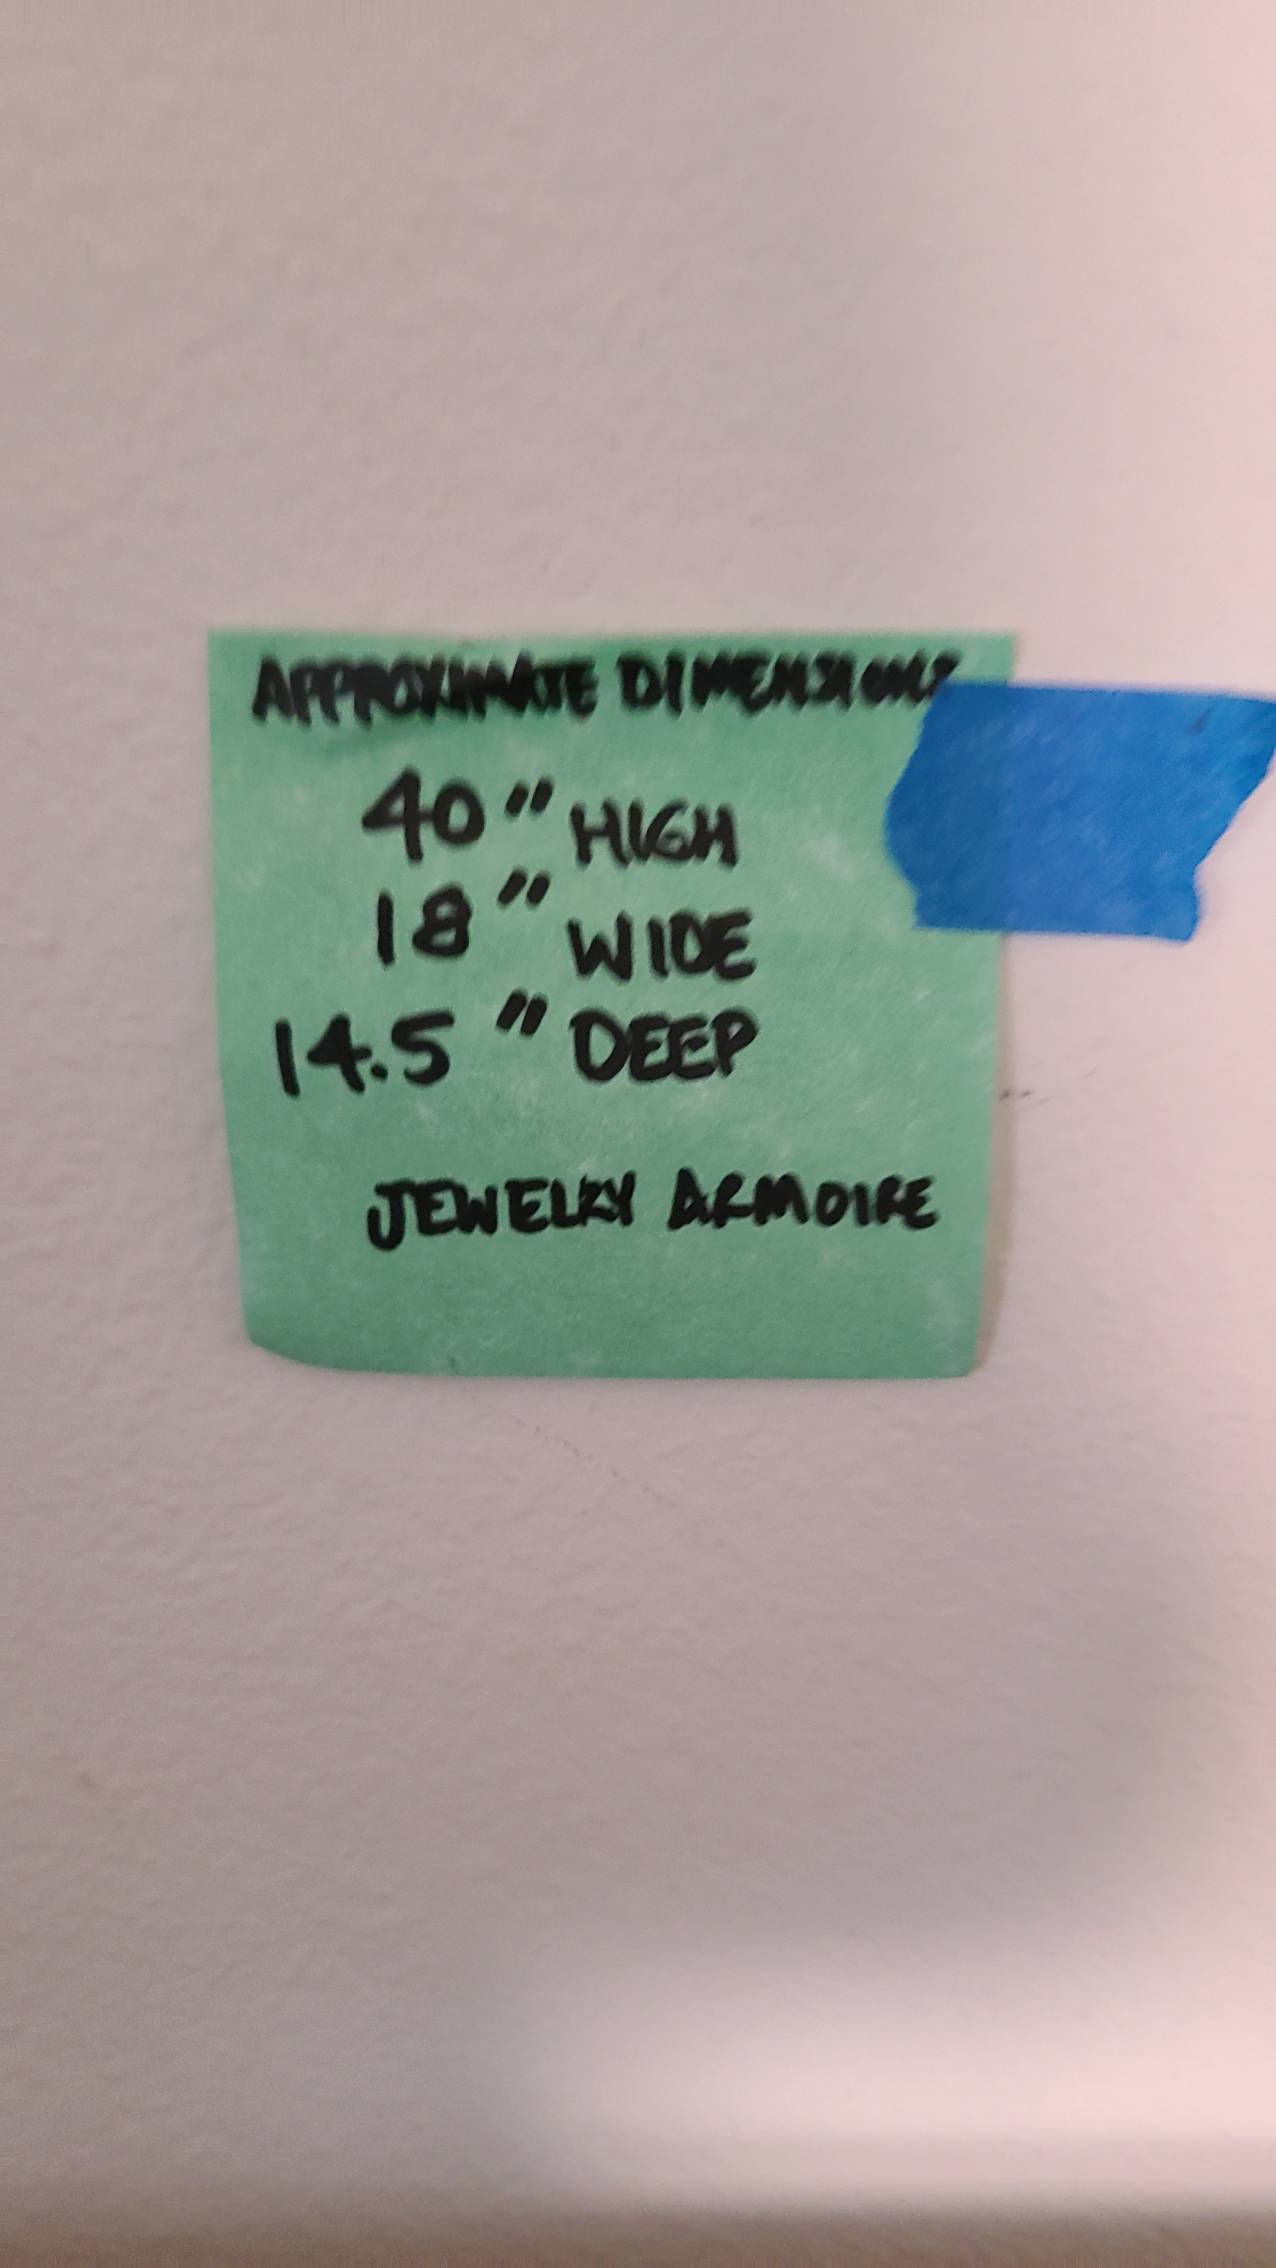 APPROXIMATE DIMENSIONS
40" HIGH
18" WIDE
14.5" DEEP
JEWELRY ARMOIRE